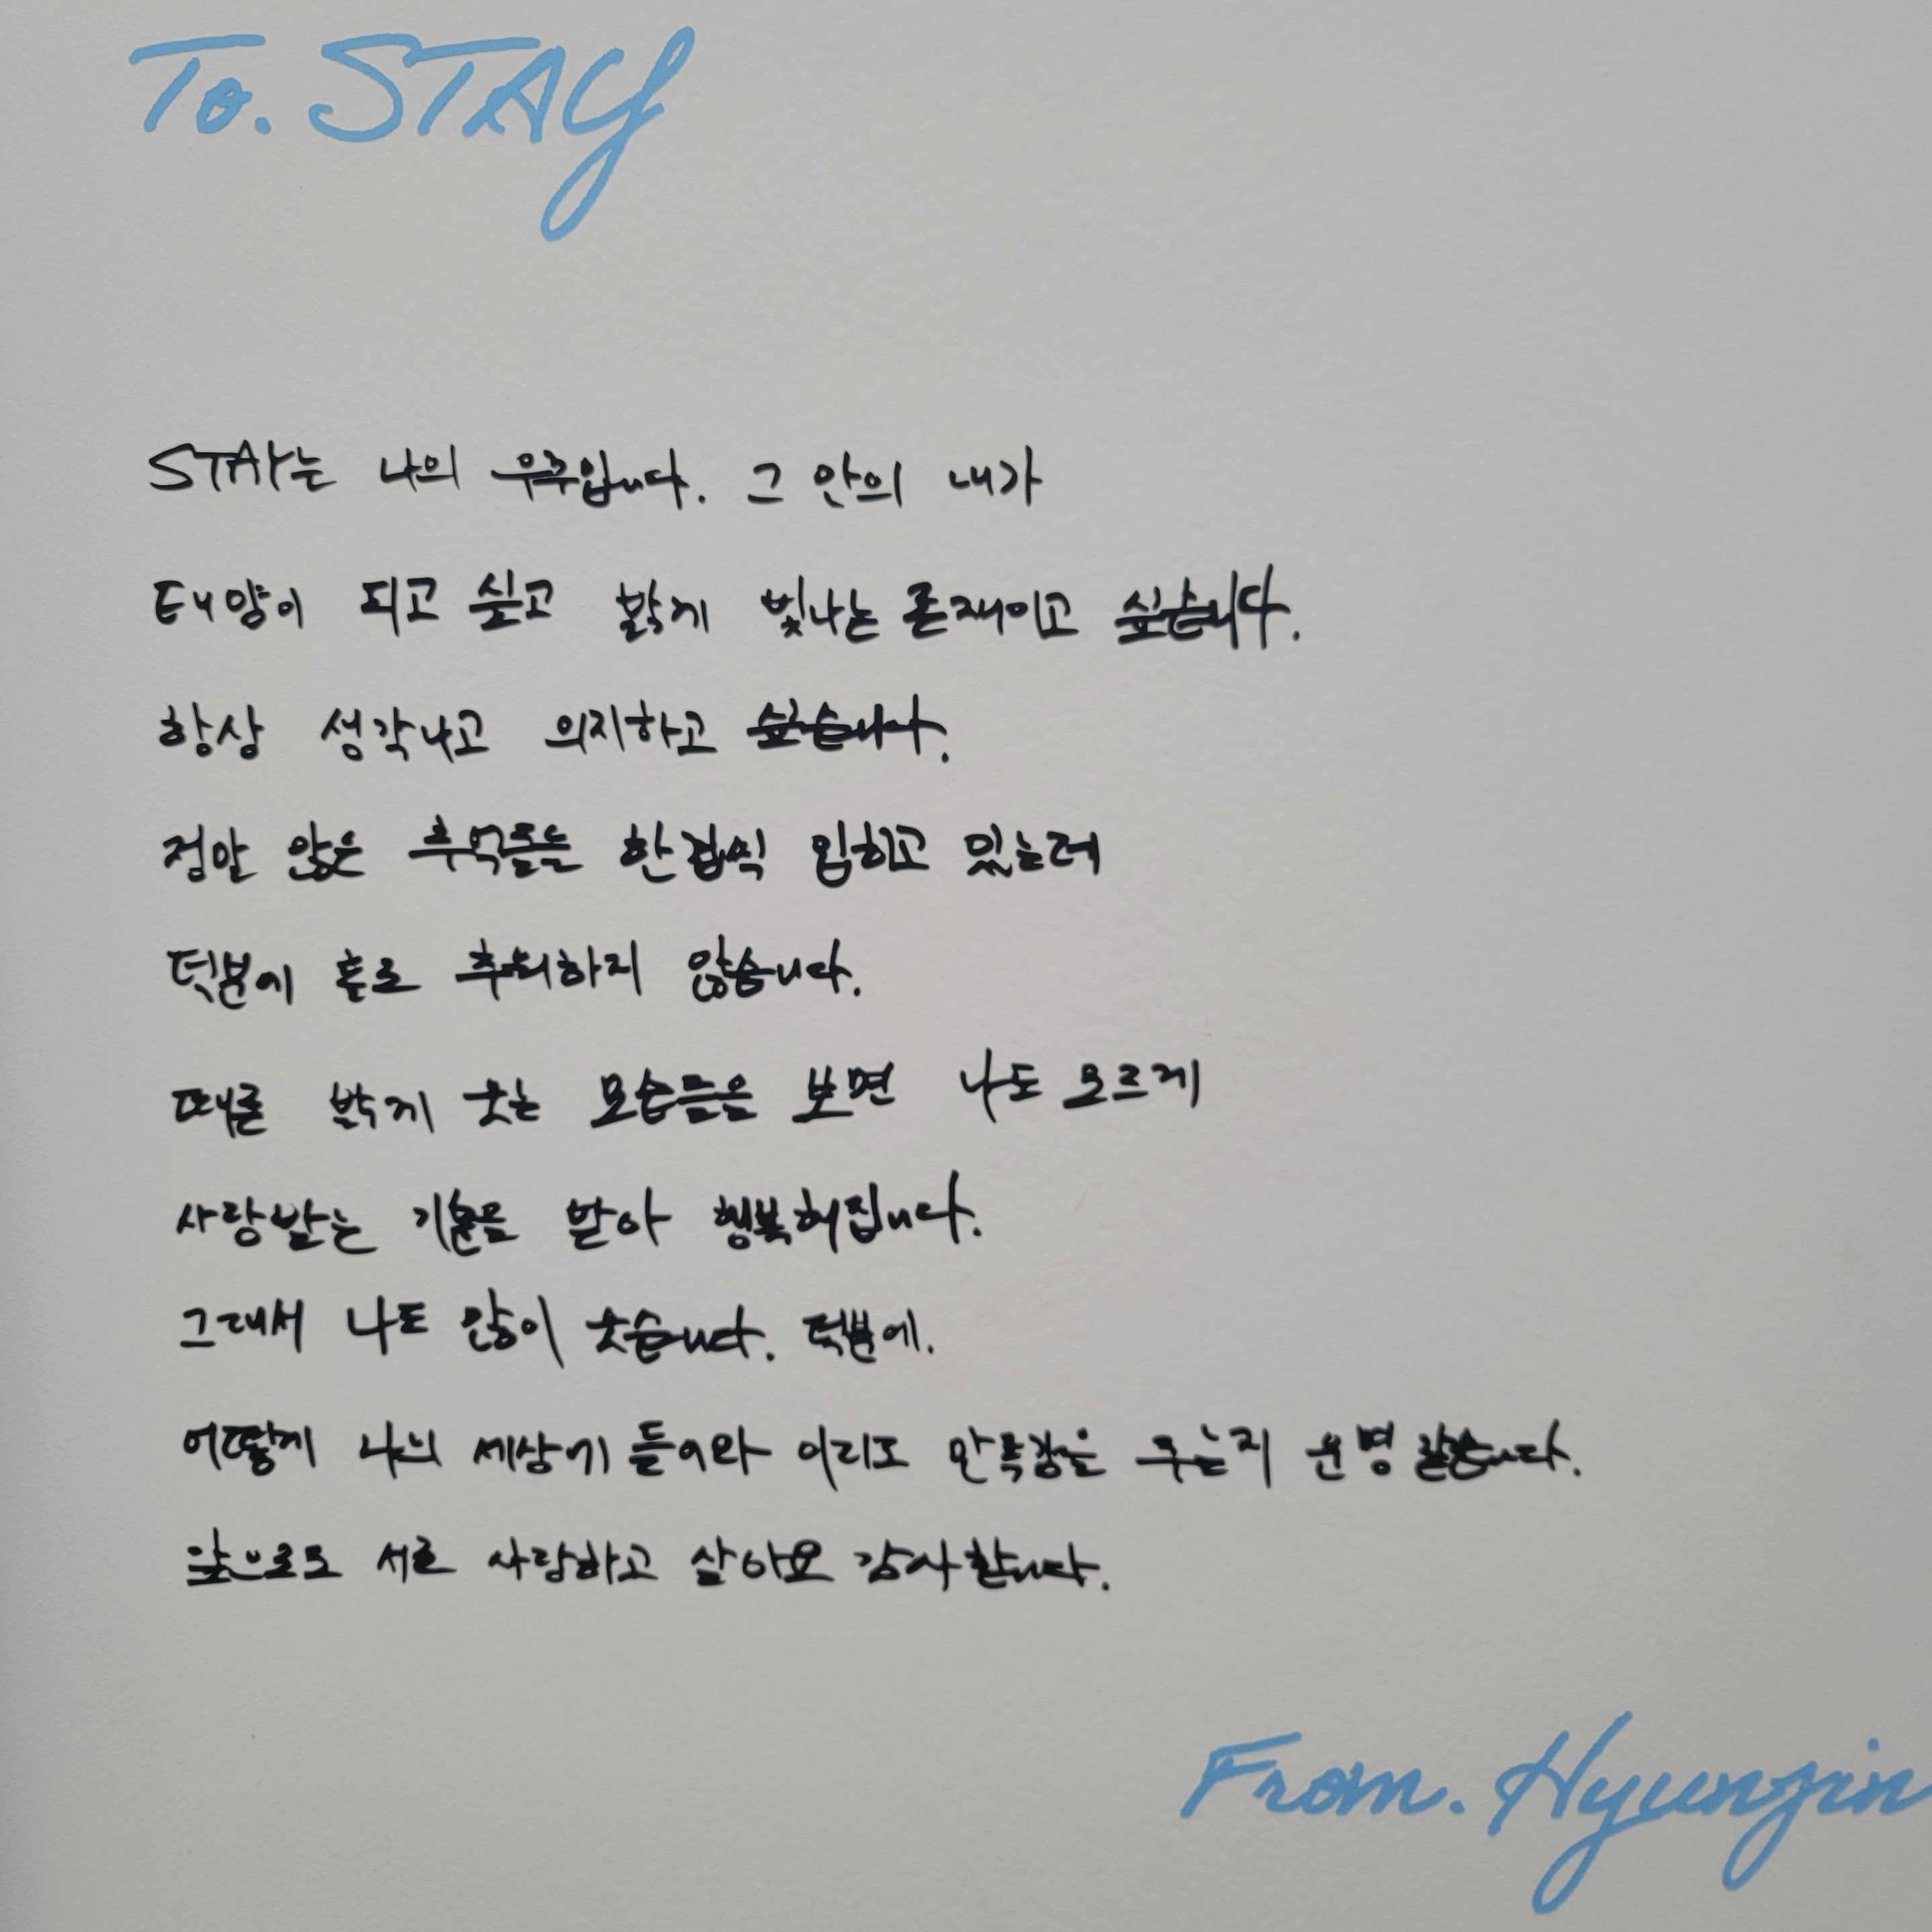 To. STAY
STAY는 나의 우주입니다. 그 안의 내가
태양이 되고 싶고 밝게 빛나는 존재이고 싶습니다.
항상 생각나고 의지하고 싶습니다.
정말 많은 추억들을 한겹씩 입히고 있는데
덕분에 홀로 후회하지 않습니다.
때론 밝게 웃는 모습들을 보면 나도 모르게
사랑받는 기분을 받아 행복해집니다.
그래서 나도 많이 웃습니다. 덕분에.
어떻게 나의 세상에 들어와 이리도 만족감을 주는지 운명 같습니다.
앞으로도 서로 사랑하고 살아요 감사합니다.
From. Hyunjin